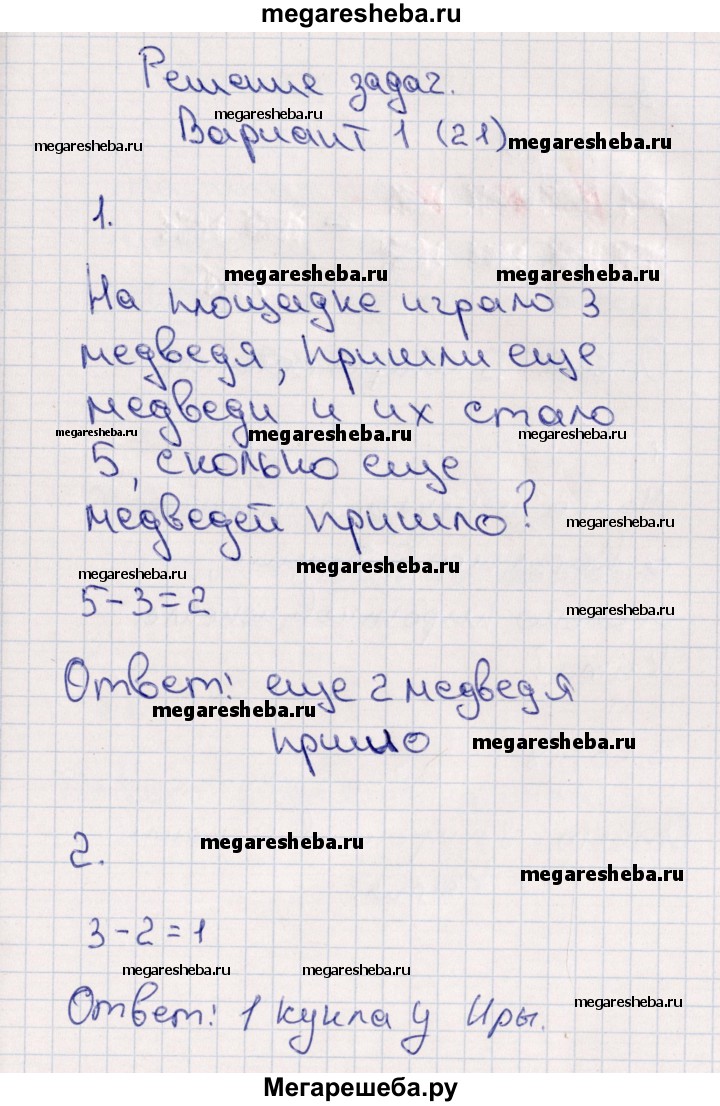 megaresheba.ru
Решение задач.
megaresheba.ru
Вариант 1 (21)
megaresheba.ru
megaresheba.ru
1.
megaresheba.ru
megaresheba.ru
На площадке играло 3
медведя, пришли еще
медведи и их стало
megaresheba.ru
megaresheba.ru
megaresheba.ru
5, сколько еще
медведей пришло?
megaresheba.ru
megaresheba.ru
megaresheba.ru
5-3=2
megaresheba.ru
Ответ: еще 2 медведя
megaresheba.ru
пришло
megaresheba.ru
2.
megaresheba.ru
megaresheba.ru
3-2=1
megaresheba.ru
megaresheba.ru
Ответ: 1 кукла у Иры.
megaresheba.ru
Мегарешеба.ру